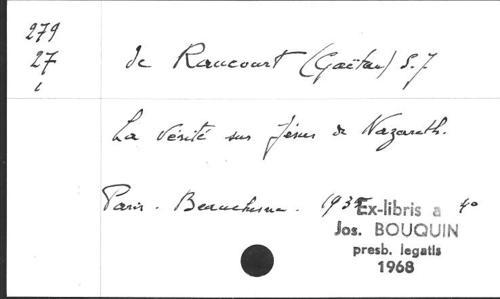 279
27
1
de Raucourt (Gaëtan) S.J
La vérité sur Jésus de Nazareth.
Paris. Beauchesne. 193 4°
Ex-libris a
Jos. BOUQUIN
presb. legatis
1968